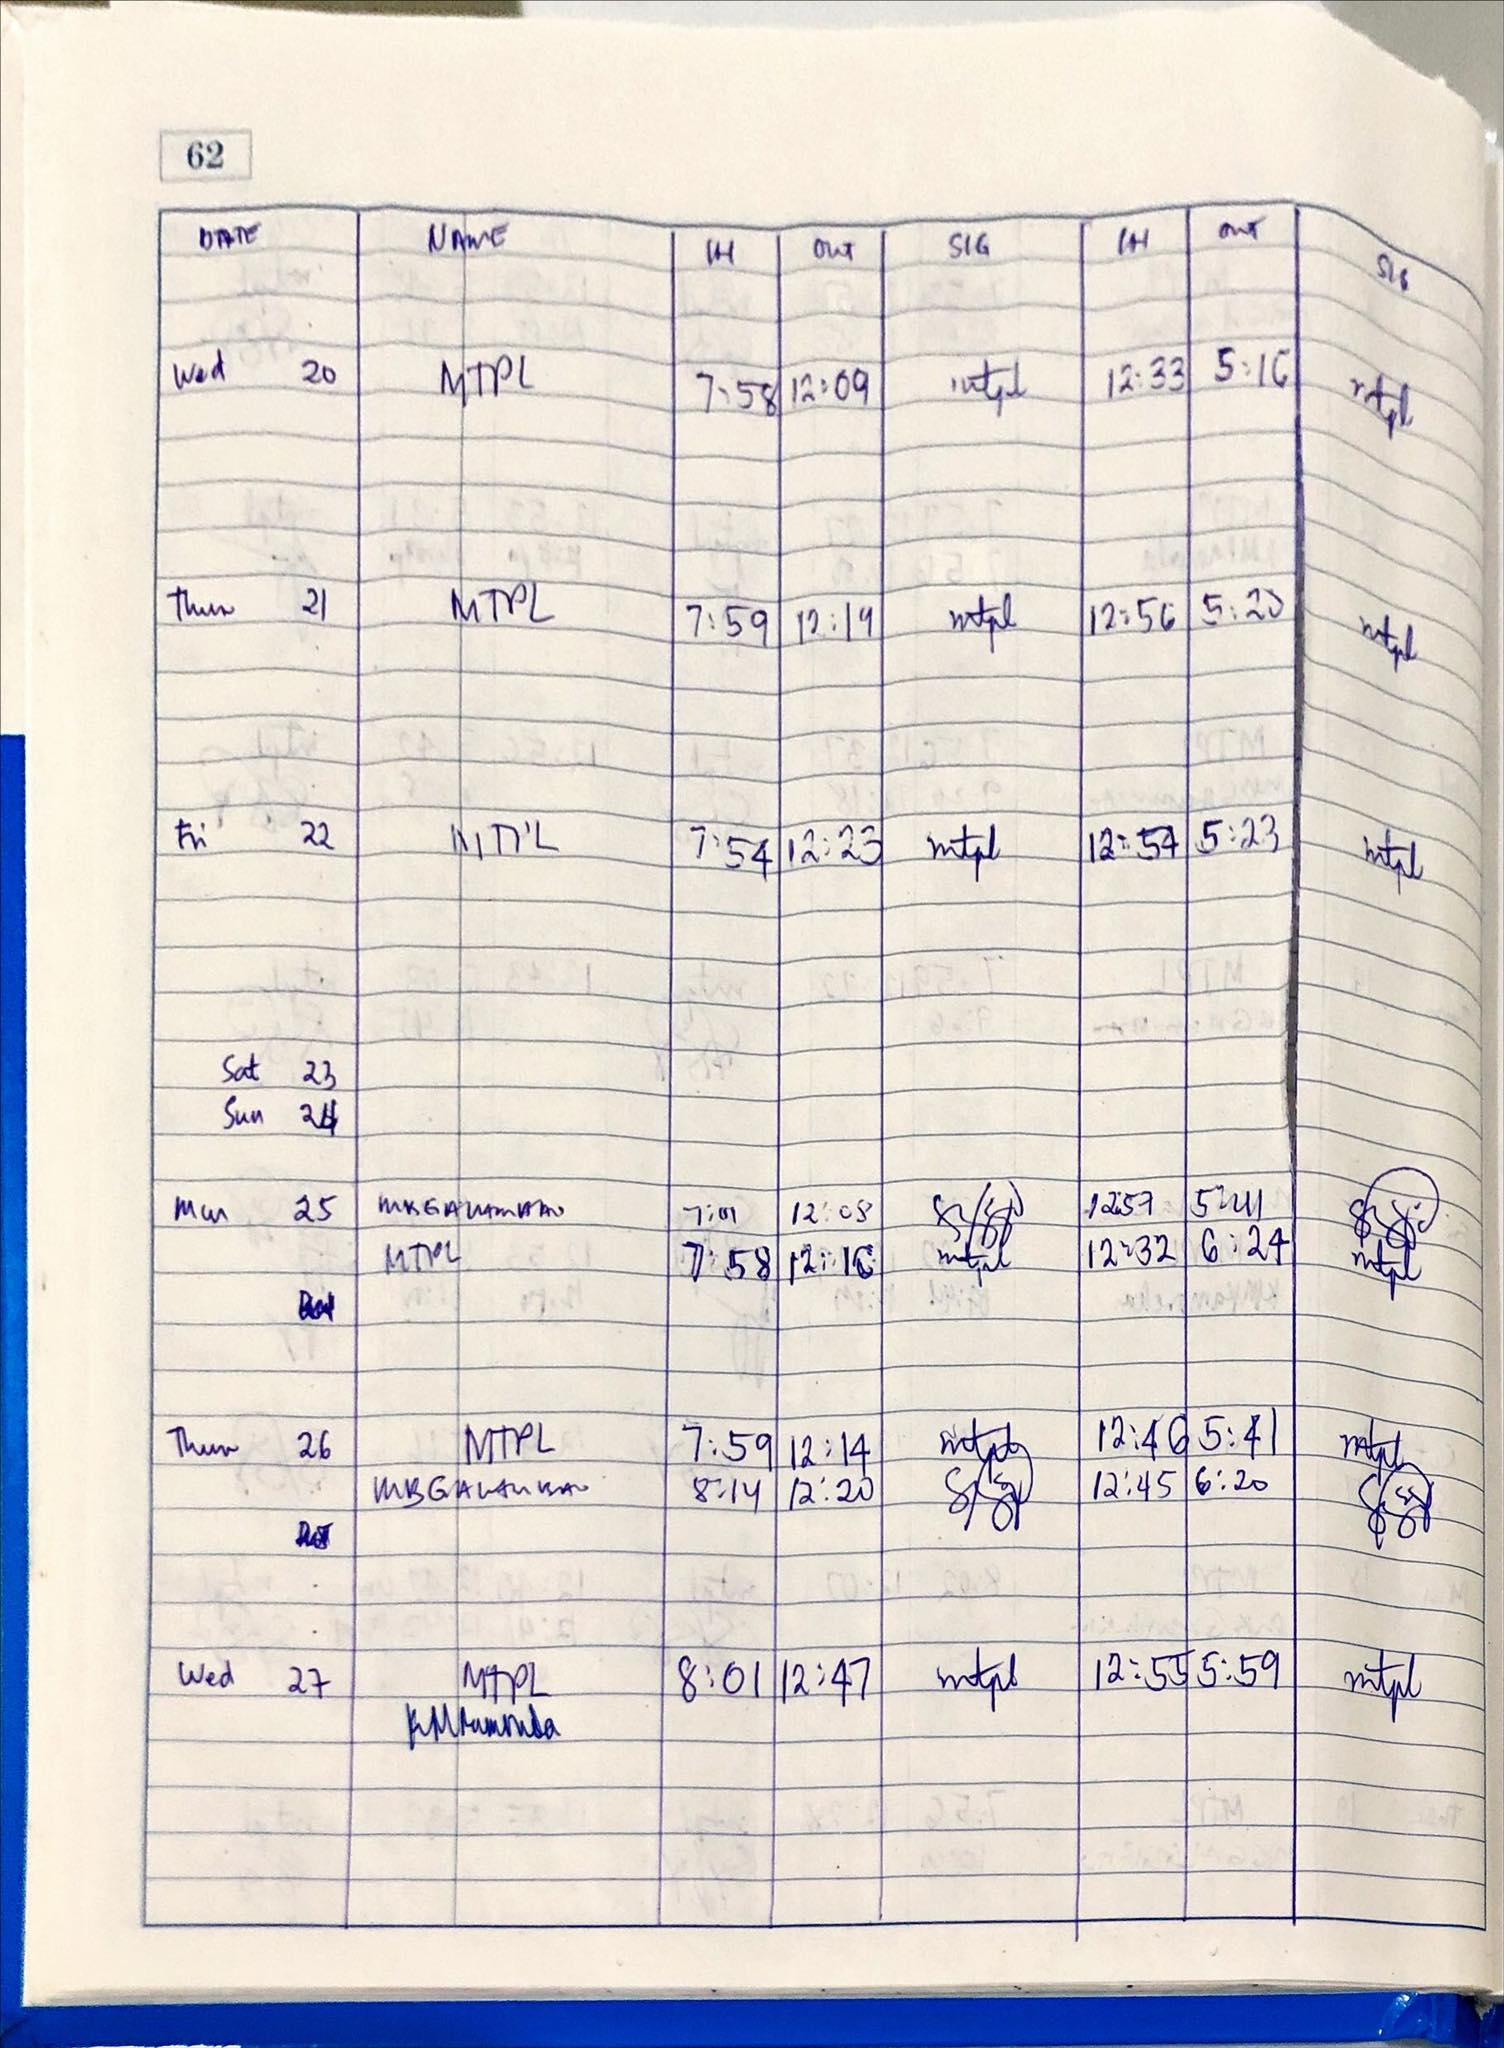 62
DATE NAME IN OUT SIG IN OUT SIG
Wed 20 MTPL 7:58 12:09 mtpl 12:33 5:16 mtpl
Thur 21 MTPL 7:59 12:19 mtpl 12:56 5:23 mtpl
Fri 22 MTPL 7:54 12:23 mtpl 12:54 5:23 mtpl
Sat 23
Sun 24
Mon 25 7:01 12:08 1257 5:41
MTPL 7:58 12:16 mtpl 12:32 6:24 mtpl
Thur 26 MTPL 7:59 12:14 mtpl 12:46 5:41 mtpl
8:14 12:20 12:45 6:20
Wed 27 MTPL 8:01 12:47 mtpl 12:55 5:59 mtpl